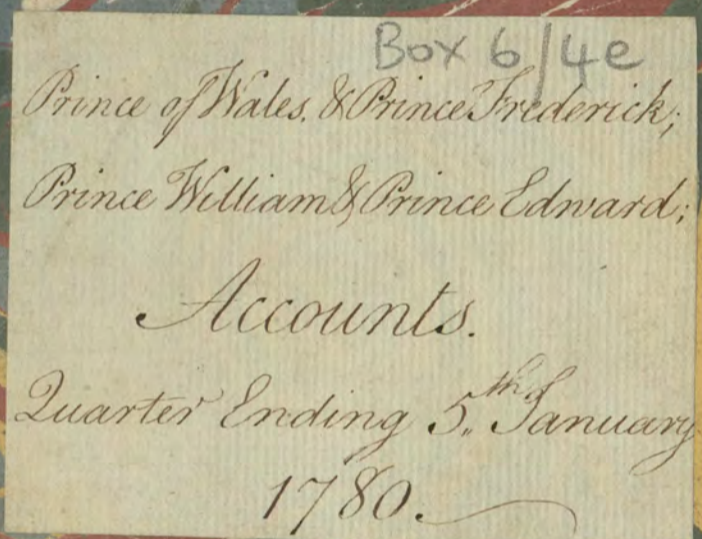 Box 6/4e
Prince of Wales. & Prince Frederick;
Prince William & Prince Edward;
Accounts.
Quarter Ending 5th. January
1780.